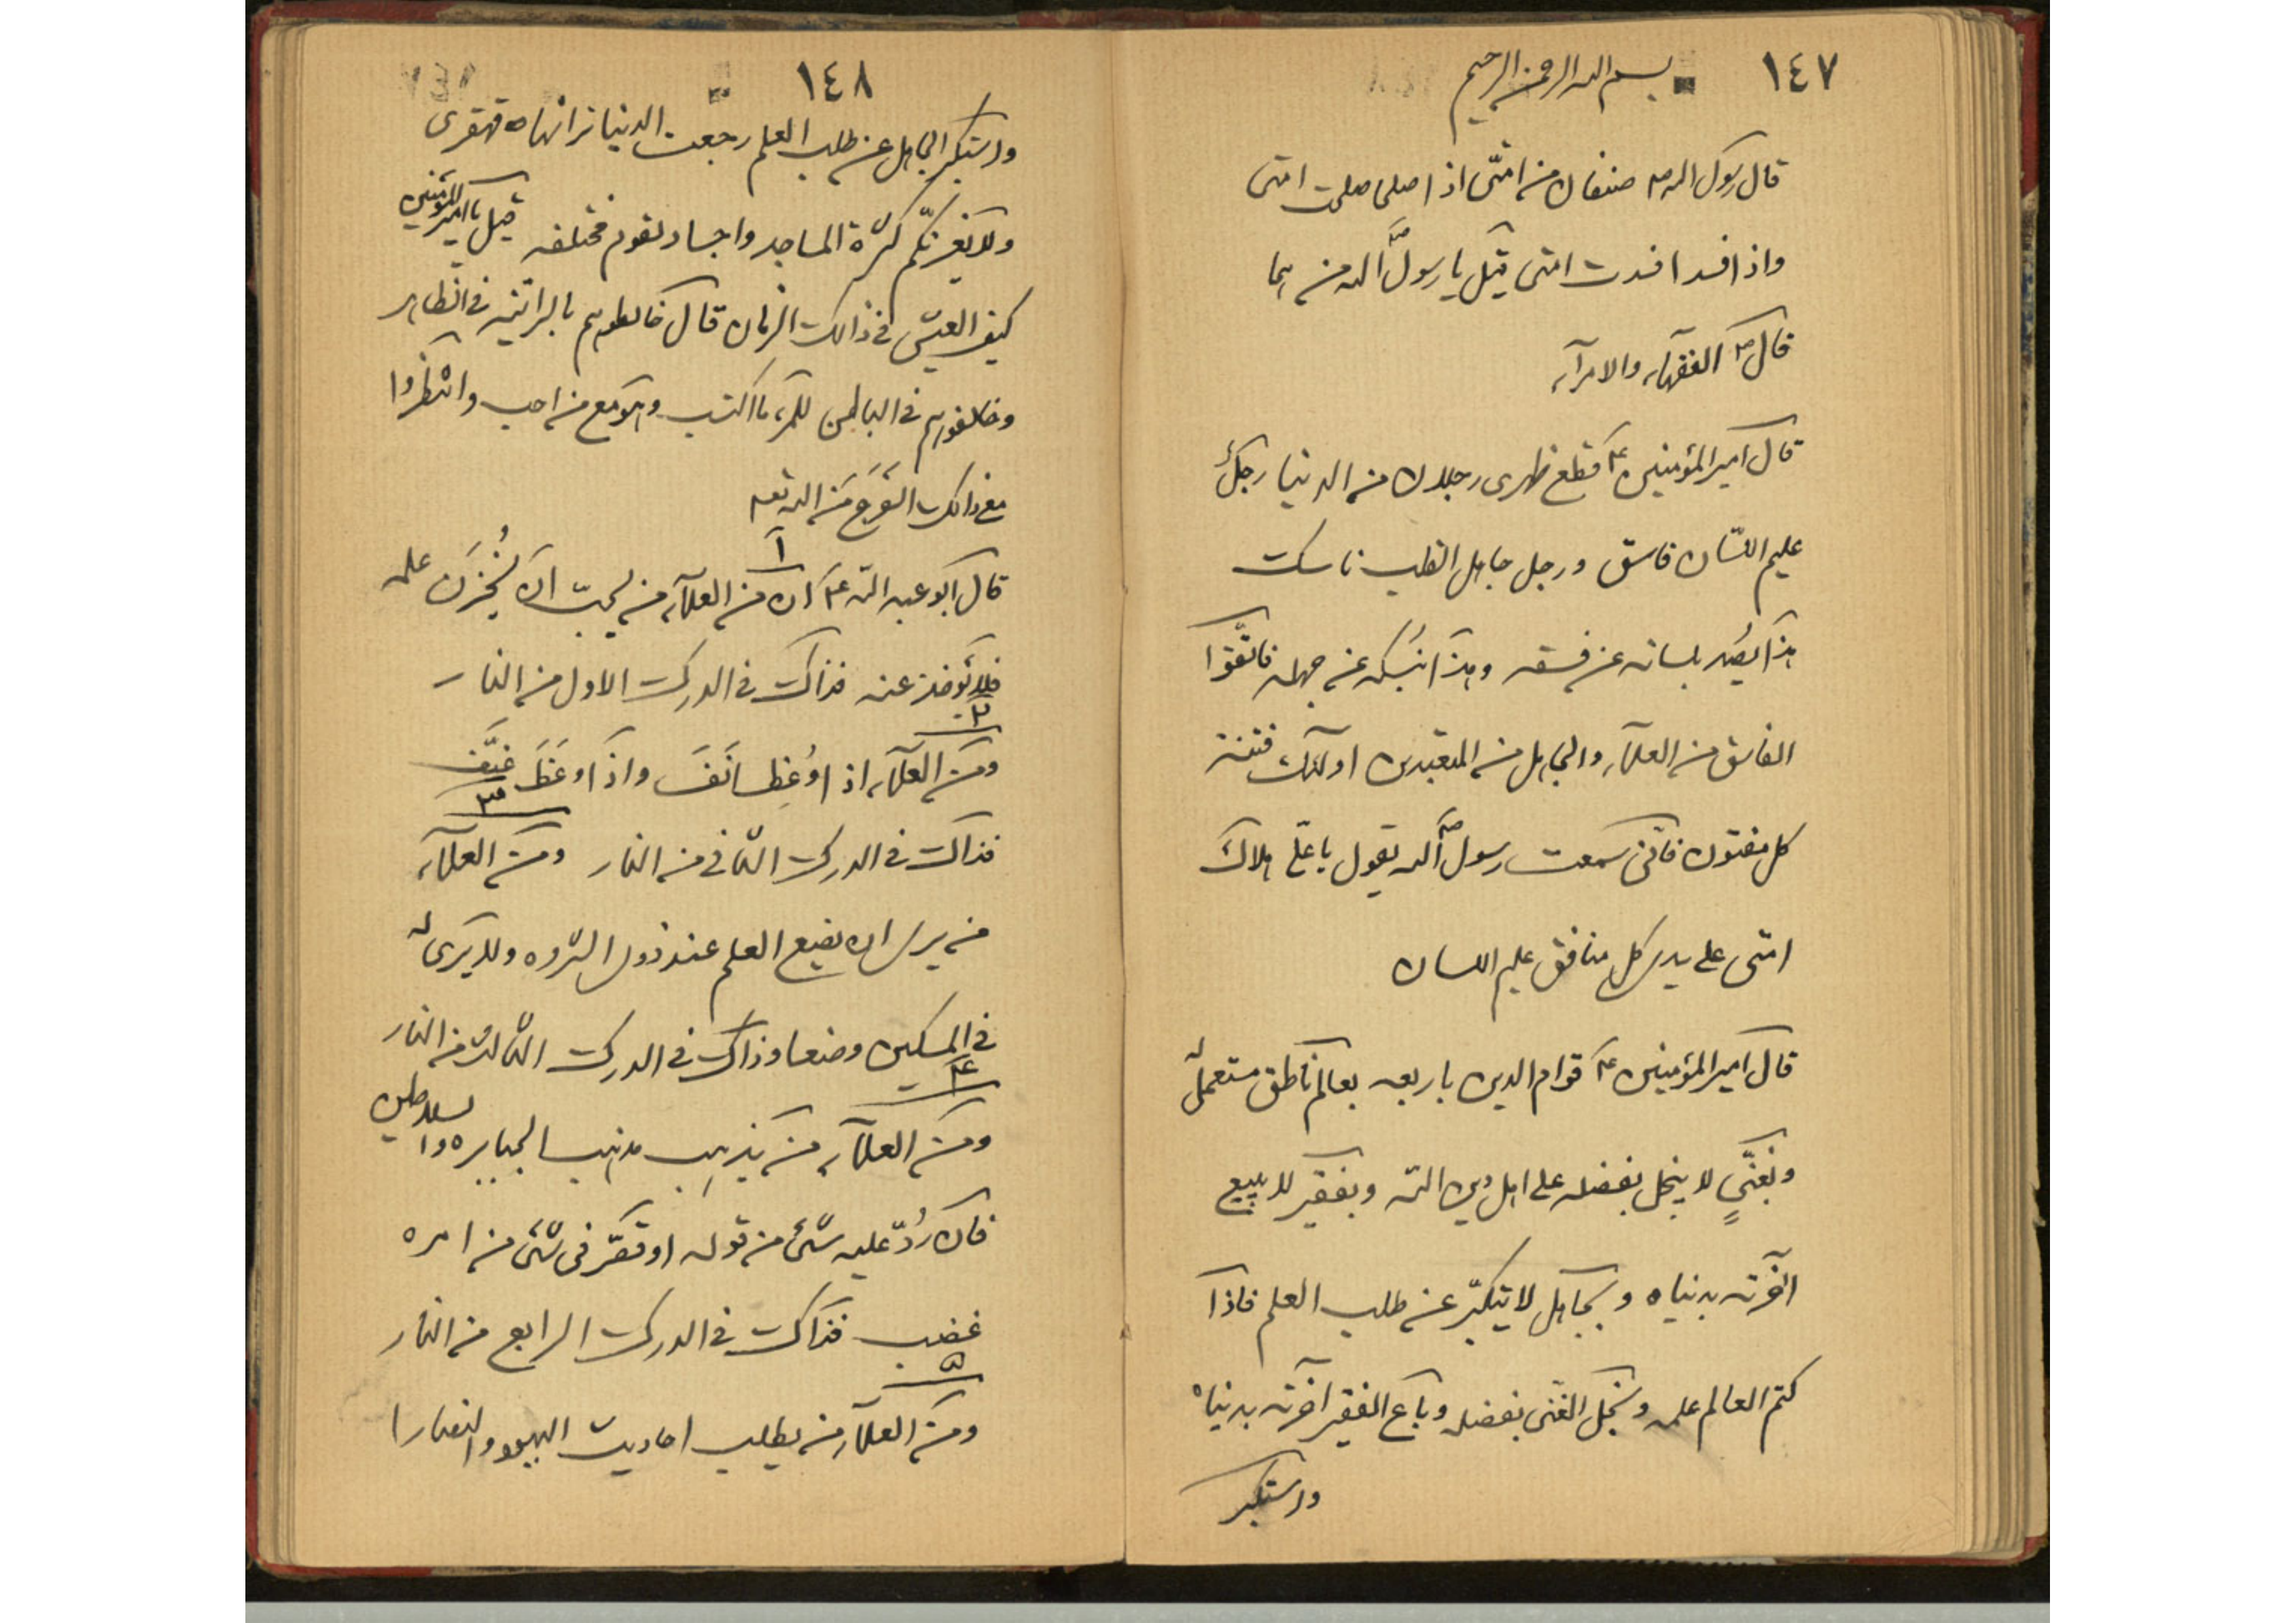 ١٤٧
بسم الله الرحمن الرحيم
قال رسول الله ص صنفان من امّتى اذا صلحا صلحت امتى
واذا فسدا فسدت امتى قيل يا رسول الله ص من هما
قال ص الفقهآء والامرآء
قال امير المؤمنين ع قطع ظهرى رجلان من الدنيا رجلٌ
عليم اللسّان فاسق ورجل جاهل القلب ناسك
هذا يصُد بلسانه عن فسقه وهذا بنُسكه عن جهله فاتّقوا
الفاسق من العلمآء والجاهل من المتعبدين اولئك فتنة
كل مفتون فانّى سمعت رسول الله ص يقول يا علىّ هلاك
امتى على يدى كل منافق عليم اللسان
قال امير المؤمنين ع قوام الدين باربعه بعالم ناطق مستعمل له
وبغنّىٍ لا يبخل بفضله على اهل دين الله وبفقير لا يبيع
آخرته بدنياه وبجاهل لا يتكبّر عن طلب العلم فاذا
كتم العالم علمه وبخل الغنى بفضله وباع الفقير آخرته بدنياه
واستكبر
١٤٨
واستكبر الجاهل عن طلب العلم رجعت الدنيا ترانها ه قهقرى
ولا يَغرّنّكم كثرة المساجد واجساد لقوم مختلفه قيل يا امير المؤمنين
كيف العيش فى ذالك الزمان قال خالطوهم بالبرانّيه فى الظاهر
وخالفوهم فى الباطن للمرء ما اكتسب وهو مع من احب وانتظروا
مع ذالك الفَرَج مَن الله تعه
١
قال ابو عبد الله ع ان من العلمآء من يحبّ ان يُخزَن علمه
فلا يؤخذ عنه فذاك فى الدرك الاول من النار
٢
ومن العلمآء اذا وُعِظ انَفَ واذا وَعَظَ عَنَّف
فذاك فى الدرك الثّانى من النار
٣
ومن العلمآء
من يرى ان يضع العلم عند ذوى الثّروه ولا يَرى له
فى المسكين وضعا وذاك فى الدرك الثّالث من النار
٤
ومن العلمآء من يذهب مذهب الجبابره والسلاطين
فان رُدّ عليه شئ من قوله او قصّر فى شئ من امره
غضب فذاك فى الدرك الرابع من النار
٥
ومن العلمآء من يطلب احاديث اليهود والنصارا